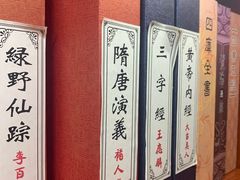 綠野仙踪
李百
隋唐演義
褚人
三字經
王應麟
黃帝內經
四庫全書